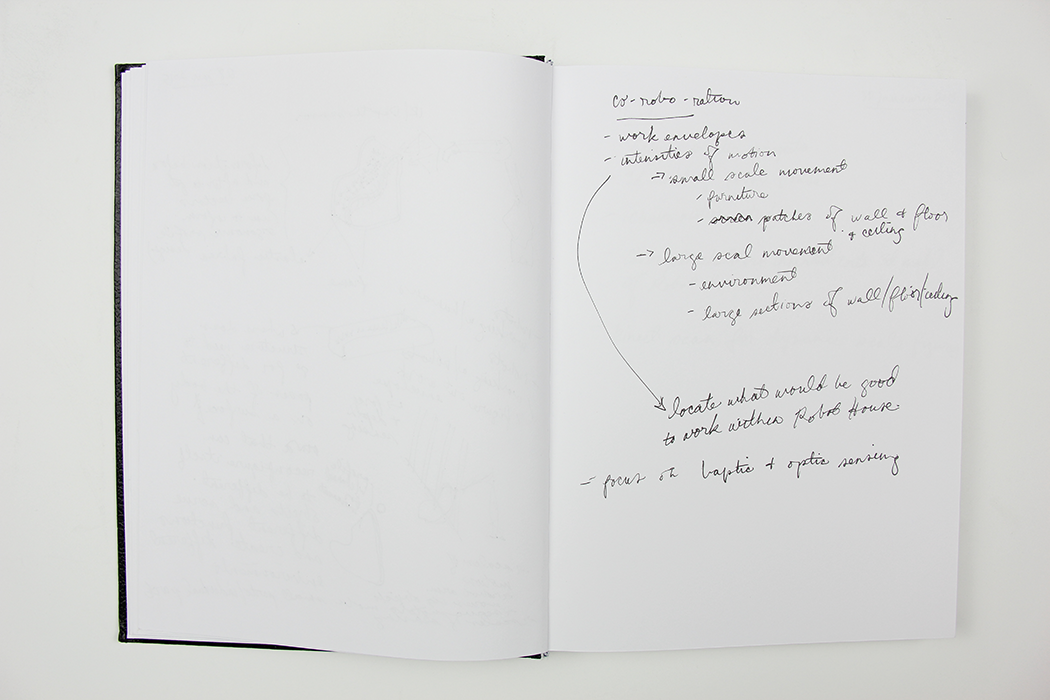 co-robo-ration
- work envelopes
- intensities of motion
→ small scale movement
- furniture
- patches of wall & floor
& ceiling
→ large scal movement
- environment
- large sections of wall/floor/ceiling
locate what would be good
to work within Robot House.
- focus on haptic & optic sensing